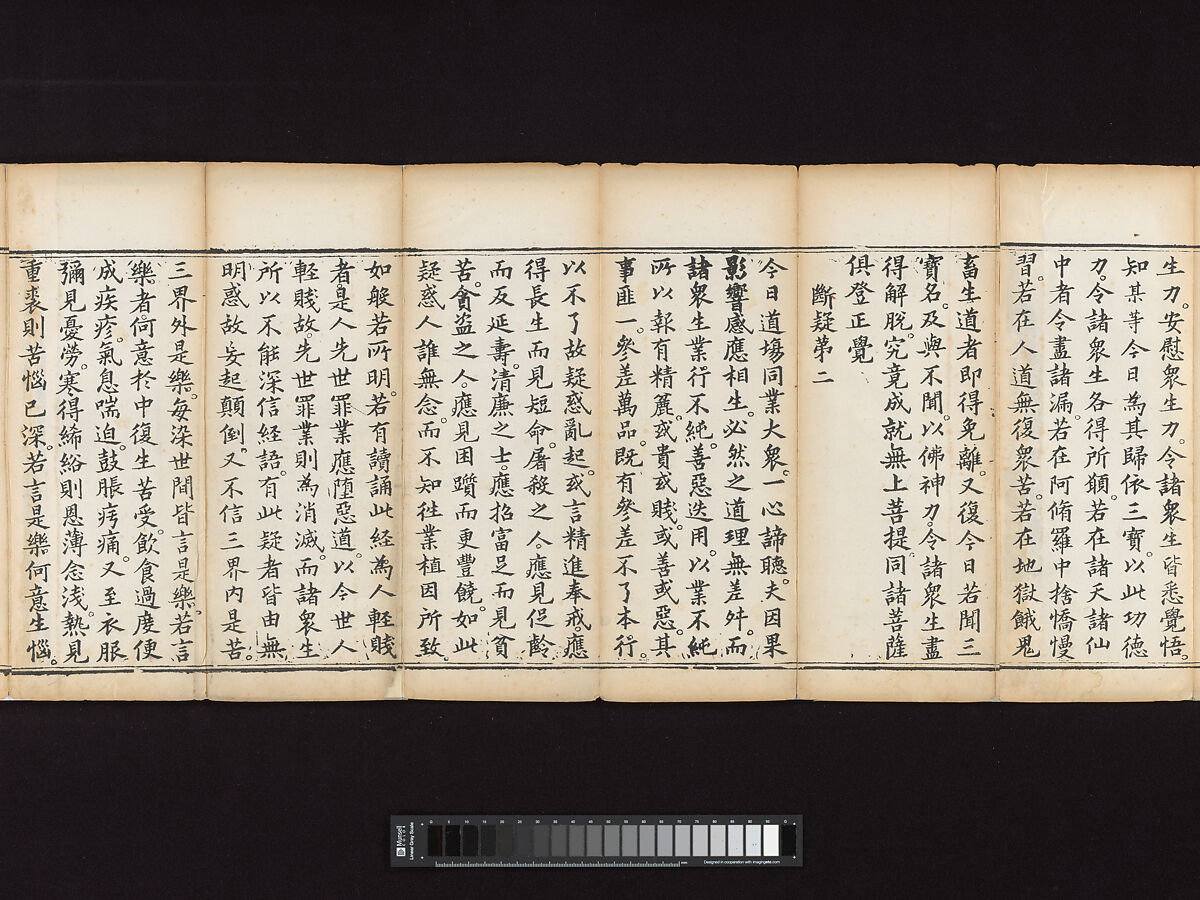 生力。安慰衆生力。令諸衆生皆悉覺悟。
知某等今日為其歸依三寶。以此功德
力。令諸衆生各得所願。若在諸天諸仙
中者。令盡諸漏。若在阿脩羅中捨憍慢
習。若在人道無復衆苦。若在地獄餓鬼
畜生道者即得免離。又復今日若聞三
寶名。及與不聞。以佛神力。令諸衆生盡
得解脫。究竟成就無上菩提。同諸菩薩
俱登正覺
斷疑第二
今日道場同業大衆。一心諦聽。夫因果
影響。感應相生。必然之道。理無差舛。而
諸衆生業行不純。善惡迭用。以業不純
所以報有精麤。或貴或賤。或善或惡。其
事匪一。參差萬品。既有參差不了本行。
以不了故疑惑亂起。或言精進奉戒應
得長生而見短命。屠殺之人。應見促齡。
而反延壽。清廉之士。應招富足而見貧
苦。貪盜之人。應見困躓而更豐饒。如此
疑惑人誰無念。而不知往業植因所致。
如般若所明。若有讀誦此経為人輕賤
者。是人先世罪業應墮惡道。以今世人
輕賤故。先世罪業則為消滅。而諸衆生
所以不能深信経語。有此疑者皆由無
明惑故。妄起顛倒。又不信三界内是苦。
三界外是樂。每染世間皆言是樂。若言
樂者。何意於中復生苦受。飲食過度便
成疾疹。氣息喘迫。鼓脹疞痛。又至衣服
彌見憂勞。寒得絺綌則恩薄念淺。熱見
重裘則苦惱已深。若言是樂何意生惱。
Munsell
COLOR
Linear Gray Scale
Designed in cooperation with imagingetc.com